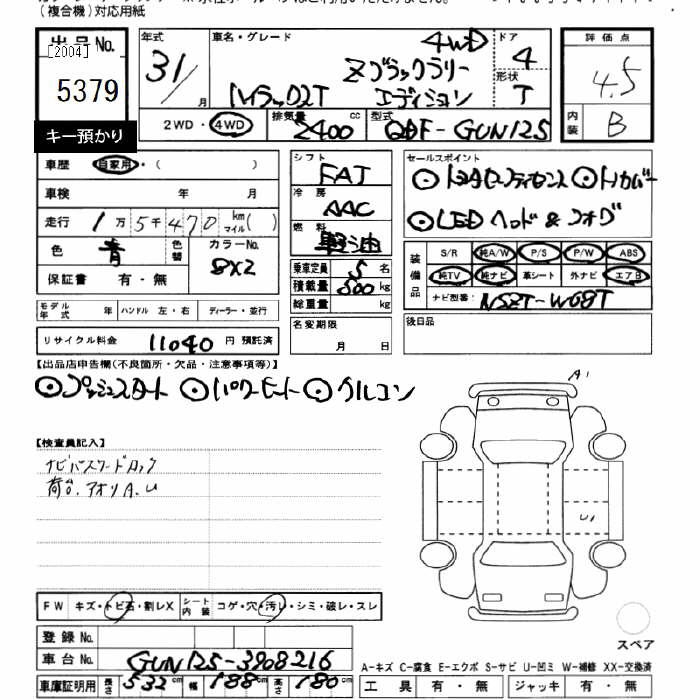 (複合機)対応用紙
出品No.
[2004]
5379
キー預かり
年式 31/ 月
車名・グレード
4WD
Zブラックラリー
ハイラックス2T エディション
ドア 4
形状 T
評価点 4.5
内装 B
2WD・4WD
排気量 2400 cc
型式 QDF-GUN125
車歴 自家用・( )
車検 年 月
走行 1万5千470 km マイル( )
色 青 色替 カラーNo. 8X2
保証書 有・無
シフト FAT
冷房 AAC
燃料 軽油
乗車定員 5 名
積載量 500 kg
総重量 kg
セールスポイント
◎トヨタセーフティセンス ◎トノカバー
◎LED ヘッド & フォグ
装備品
S/R 純A/W P/S P/W ABS
純TV 純ナビ 革シート 外ナビ エアB
ナビ型番: NSZT-W68T
モデル年式 年 ハンドル 左・右 ディーラー・並行
リサイクル料金 11040 円 預託済
名変期限 月 日
後日品
【出品店申告欄(不良箇所・欠品・注意事項等)】
◎プッシュスタート ◎パワーシート ◎クルコン
A1
【検査員記入】
ナビパスワードロック
荷台.アオリA.U
U1
FW キズ・トビ石・割レX シート内装 コゲ・穴・汚レ・シミ・破レ・スレ
登録No.
車台No. GUN125-3908216
スペア
A-キズ C-腐食 E-エクボ S-サビ U-凹ミ W-補修 XX-交換済
車庫証明用 長さ 532 cm 幅 188 cm 高さ 180 cm
工具 有・無 ジャッキ 有・無